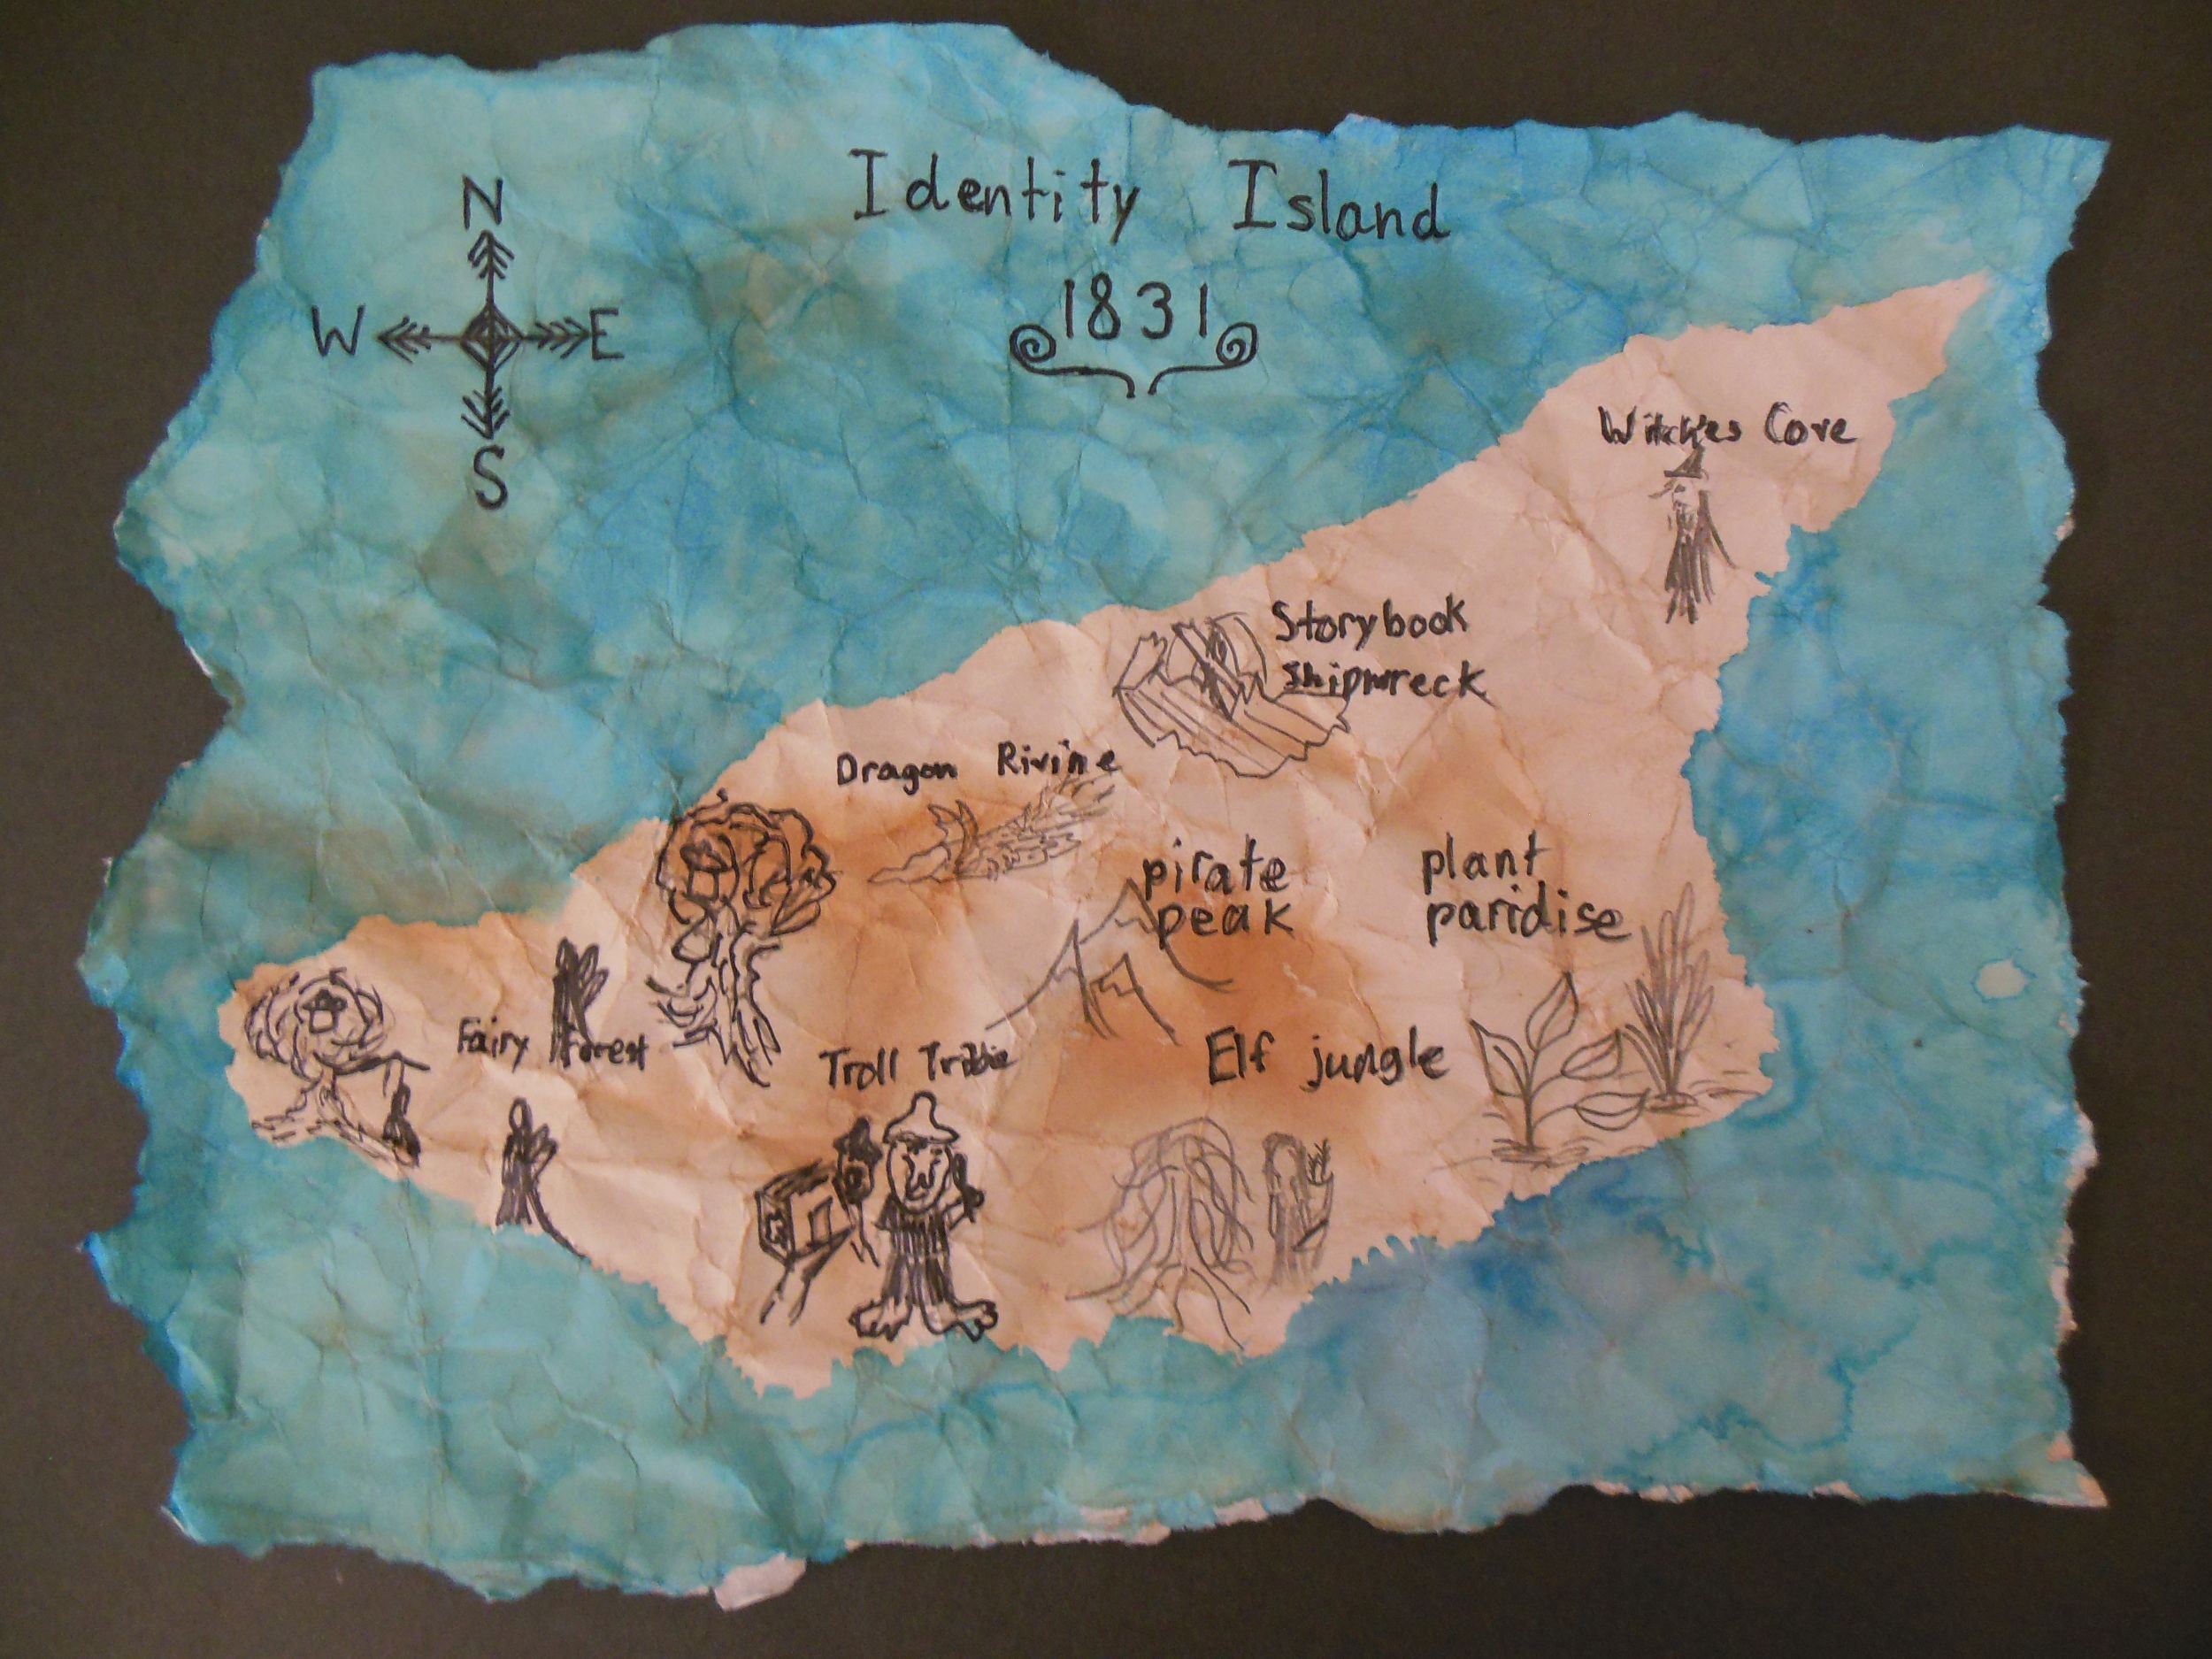 Identity Island
1831
N
W E
S
Witches Cove
Storybook
Shipwreck
Dragon Rivine
pirate
peak
plant
paridise
Fairy Forest
Troll Tribe
Elf jungle